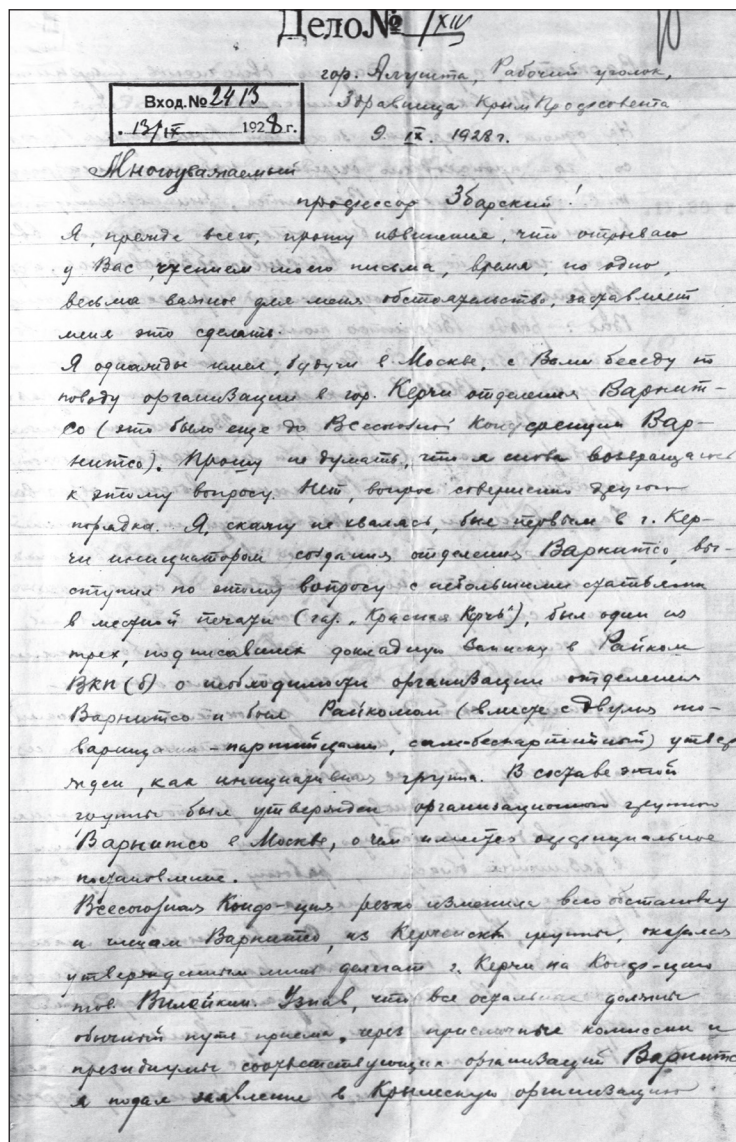 Дело № 1/XIV
гор. Алушта, Рабочий уголок,
Здравница КрымПрофсовета
Вход. № 2413
13/IX 1928 г.
9. IX. 1928 г.
Многоуважаемый
профессор Збарский!
Я, прежде всего, прошу извинения, что отрываю
у Вас, чтением моего письма, время, но одно,
весьма важное для меня обстоятельство, заставляет
меня это сделать.
Я однажды имел, будучи в Москве, с Вами беседу по
поводу организации в гор. Керчи отделения Варнит-
со (это было еще до Всесоюзной Конференции Вар-
нитсо). Прошу не думать, что я снова возвращаюсь
к этому вопросу. Нет, вопрос совершенно другого
порядка. Я, скажу не хвалясь, был первым в г. Кер-
чи инициатором создания отделения Варнитсо, вы-
ступил по этому вопросу с небольшими статьями
в местной печати (газ. „Красная Керчь"), был один из
трех, подписавших докладную записку в Райком
ВКП(б) о необходимости организации отделения
Варнитсо и был Райкомом (вместе с двумя то-
варищами - партийцами, сам-беспартийный) утвер
жден, как инициативная группа. В составе этой
группы был утвержден организационной группой
Варнитсо в Москве, о чем имеется официальное
постановление.
Всесоюзная Конф-ция резко изменила всю обстановку
и членам Варнитсо, из Керченской группы, оказался
утвержденным лишь делегат г. Керчи на Конф-цию
тов. Узнав, что все остальные должны
обычный путь приема, через приемные комиссии и
президиумы соответствующих организаций Варнитсо
я подал заявление в Крымскую организацию